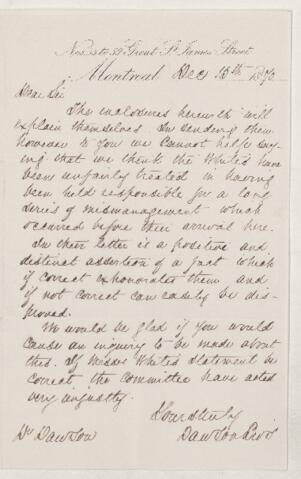 Nos. 55 to 59 Great St. James Street
Montreal Dec 15th 1870
Dear Sir
The inclosures herewith will
explain themselves. In sending them
however to you we cannot help say-
ing that we think the Whites have
been unfairly treated in having
been held responsible for a long
series of mismanagement which
occurred before their arrival here.
In their letter is a positive and
distinct assertion of a fact which
if correct exhonorates them and
if not correct can easily be dis-
proved.
We would be glad if you would
cause an inquiry to be made about
this. If Messrs Whites statement be
correct, the committee have acted
very unjustly.
Yours truly
Dawson Bros
Dr Dawson